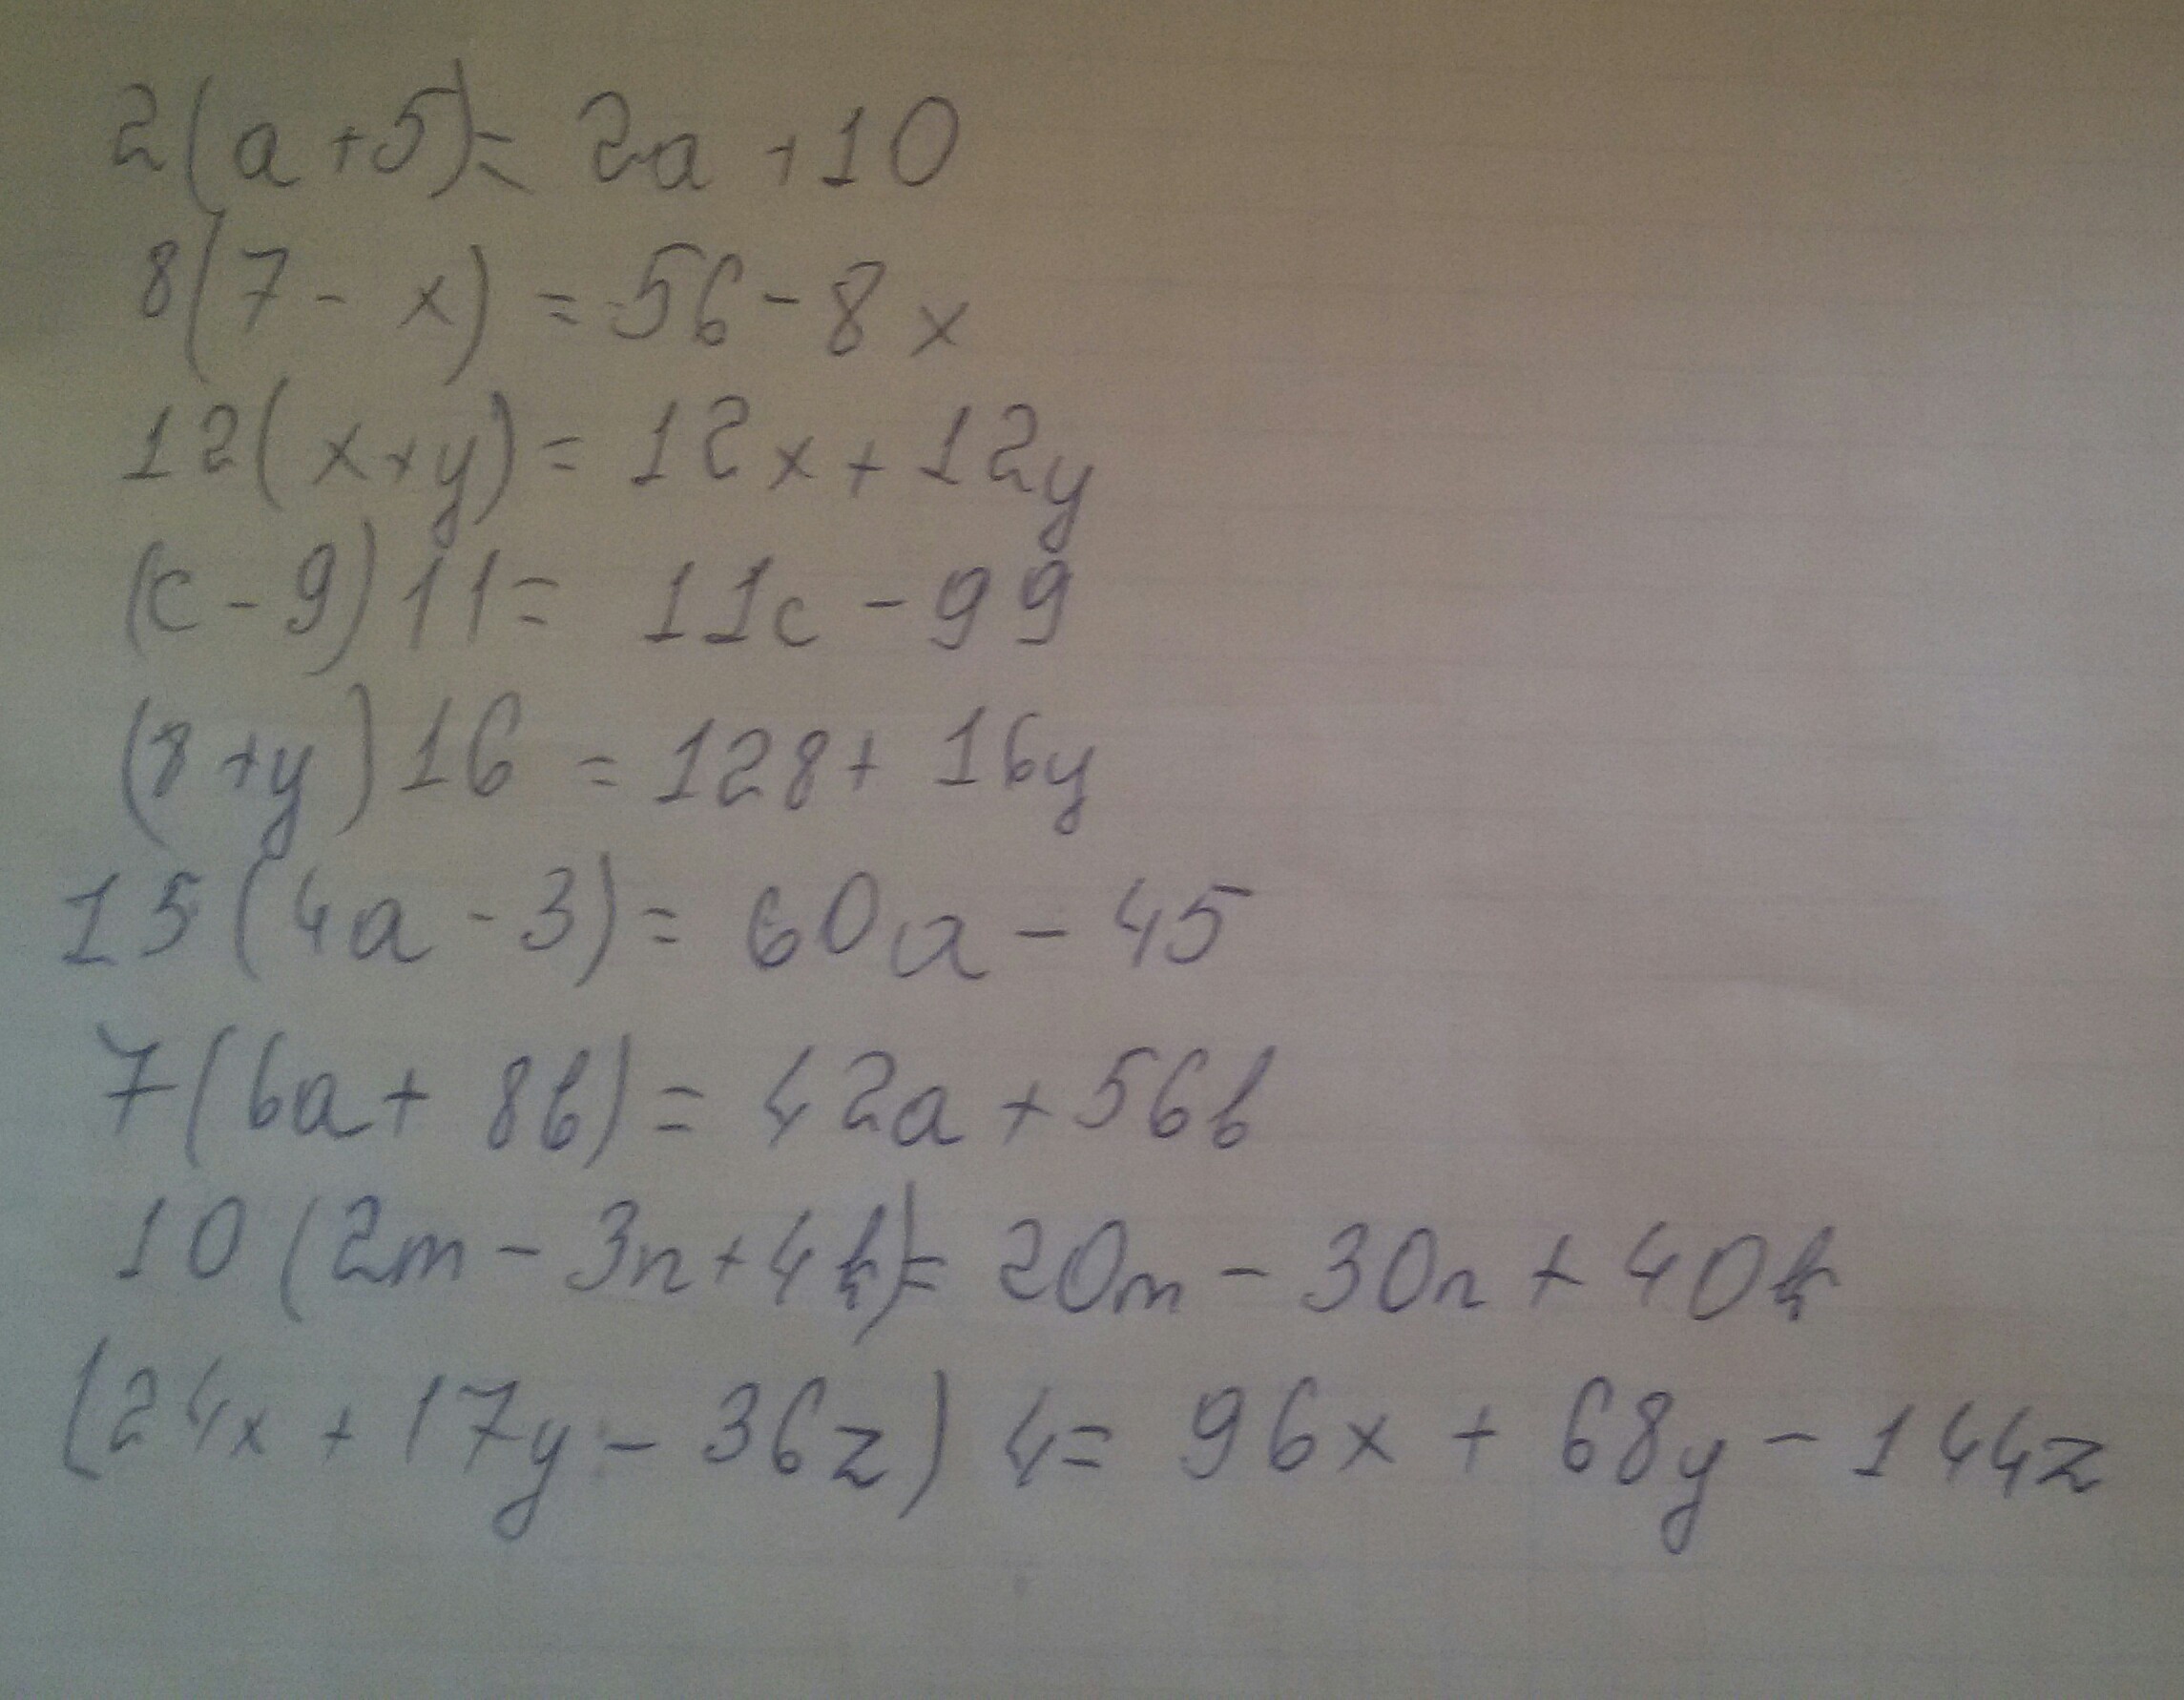 2(a+5)= 2a+10
8(7-x)=56-8x
12(x+y)=12x+12y
(c-9)11=11c-99
(8+y)16=128+16y
15(4a-3)=60a-45
7(6a+8b)=42a+56b
10(2m-3n+4k)=20m-30n+40k
(24x+17y-36z)4=96x+68y-144z